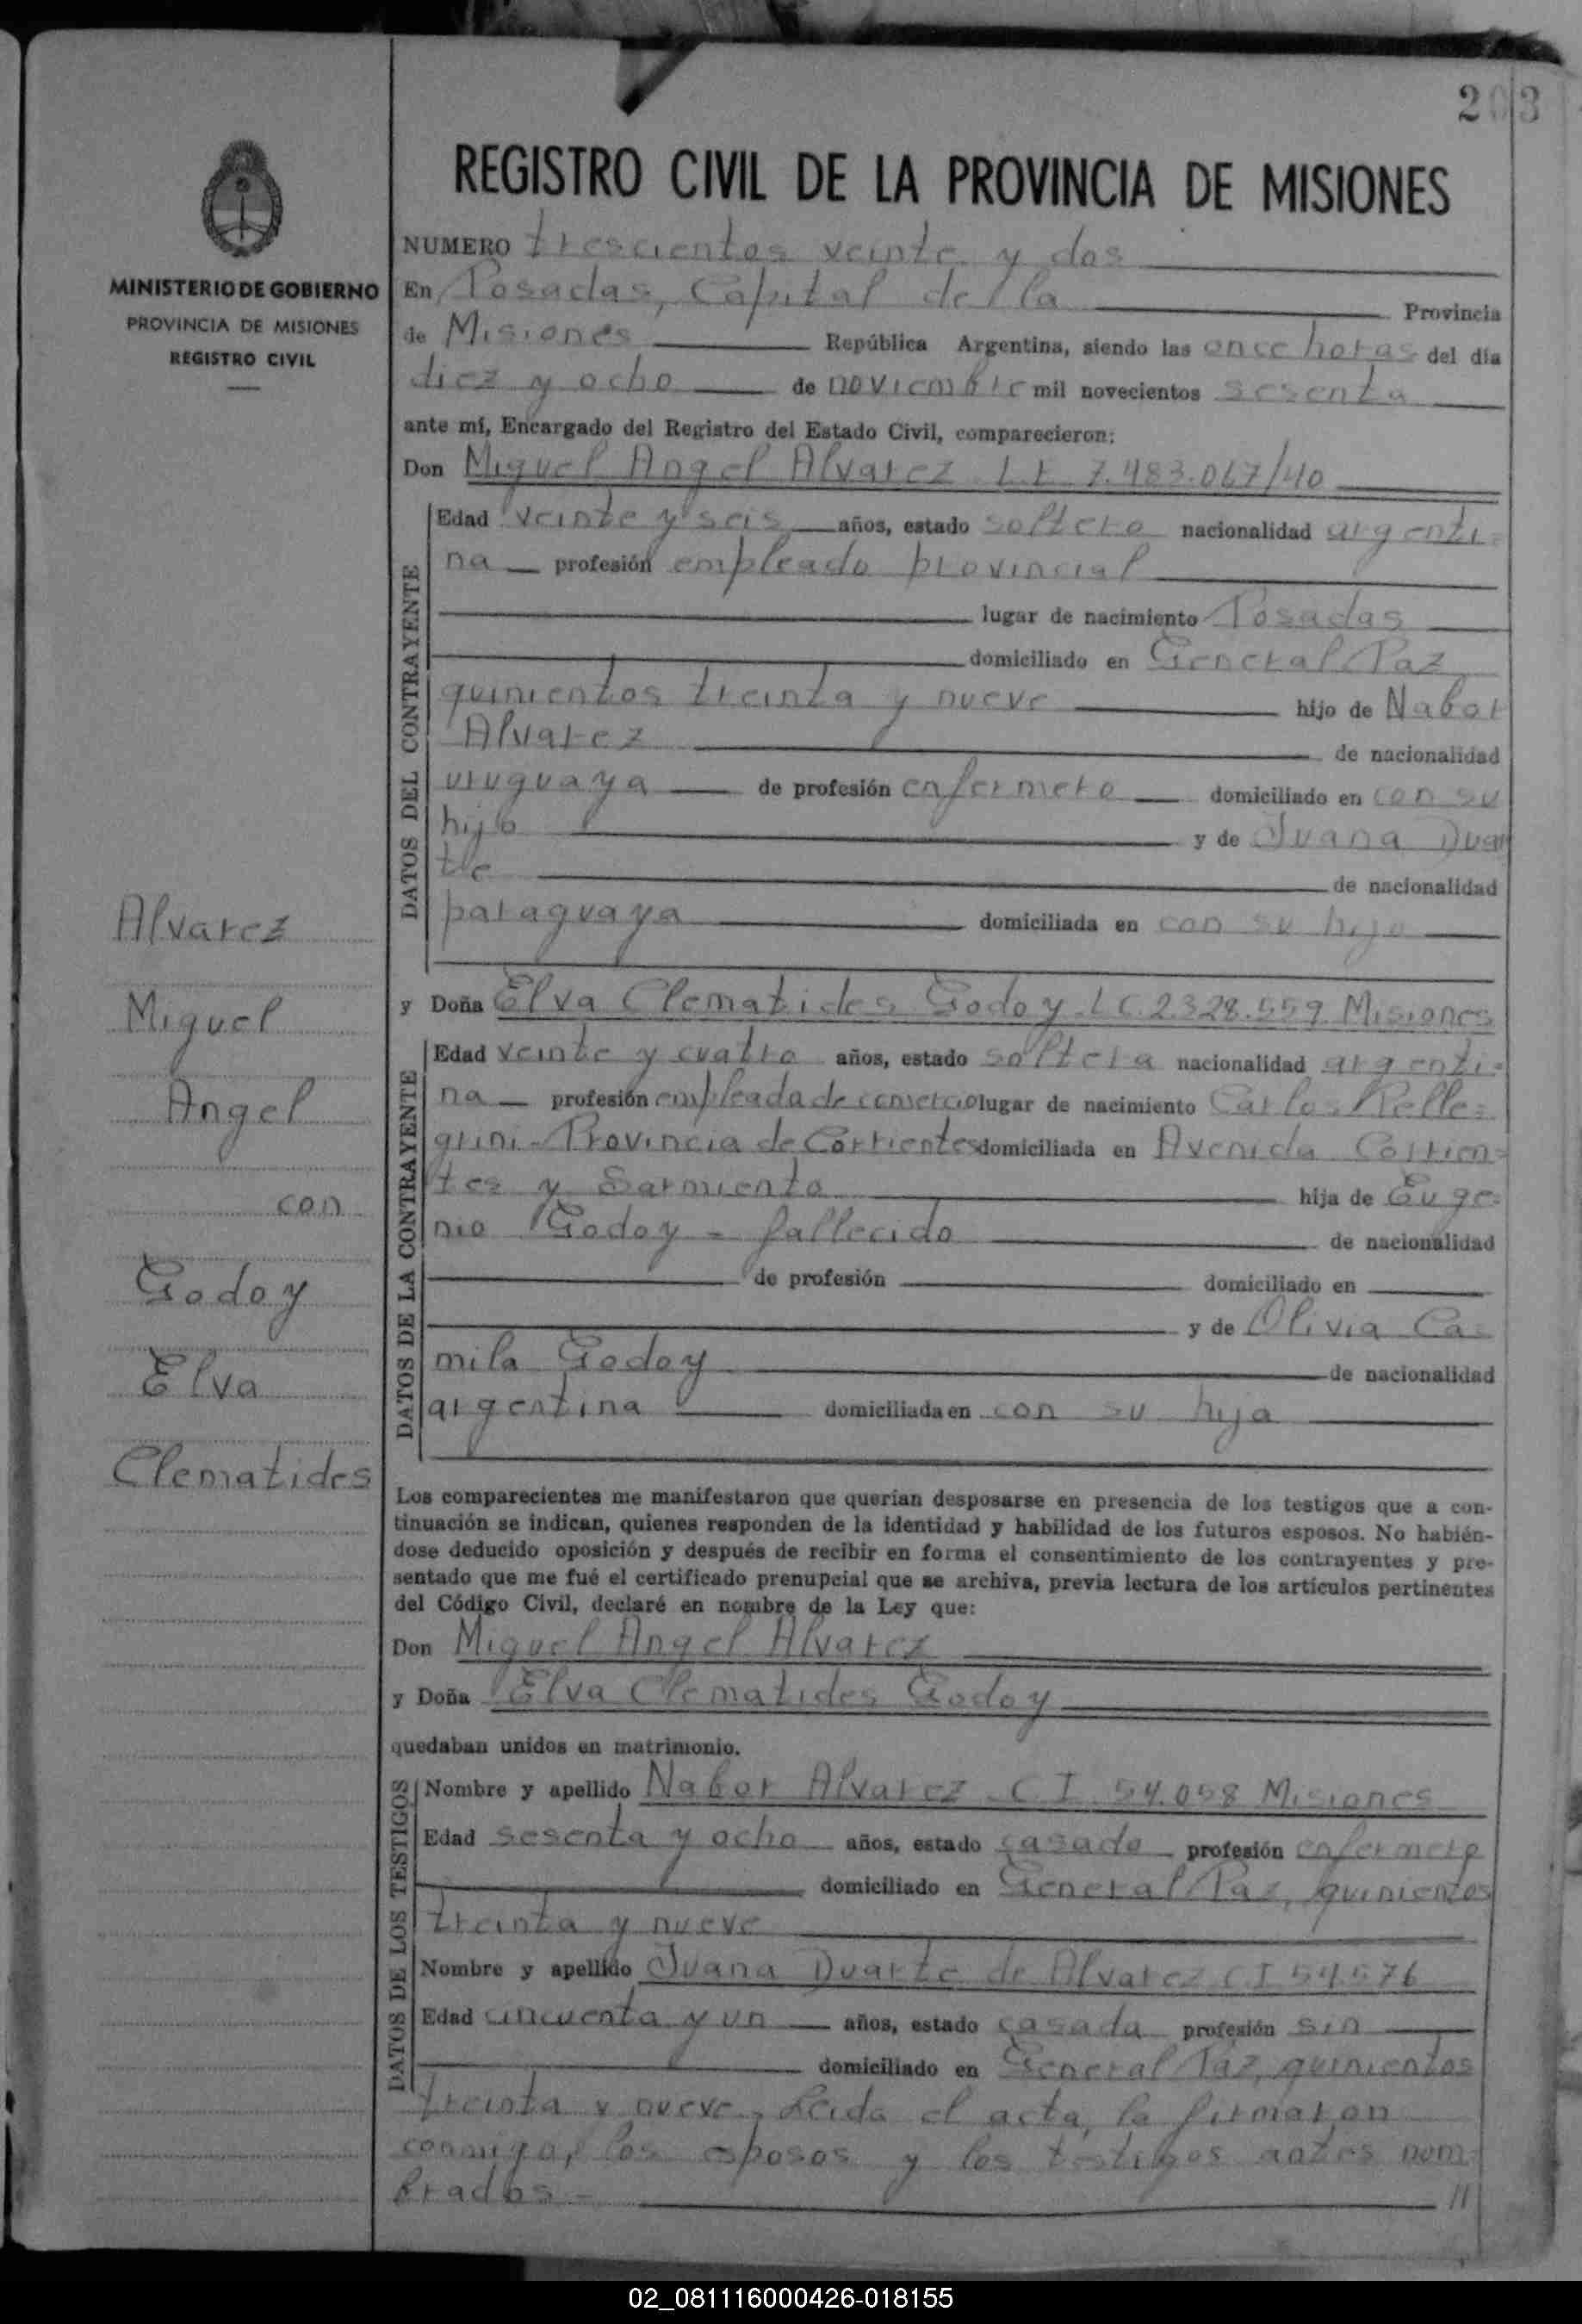 203
REGISTRO CIVIL DE LA PROVINCIA DE MISIONES
MINISTERIO DE GOBIERNO
PROVINCIA DE MISIONES
REGISTRO CIVIL
NUMERO trescientos veinte y dos
En Posadas, Capital de la Provincia
de Misiones República Argentina, siendo las once horas del día
diez y ocho de noviembre mil novecientos sesenta
ante mí, Encargado del Registro del Estado Civil, comparecieron:
Don Miguel Angel Alvarez L E 7.483.067/40
DATOS DEL CONTRAYENTE
Edad veinte y seis años, estado soltero nacionalidad argenti=
na profesión empleado provincial
lugar de nacimiento Posadas
domiciliado en General Paz
quinientos treinta y nueve hijo de Nabor
Alvarez de nacionalidad
uruguaya de profesión enfermero domiciliado en con su
hijo y de Juana Duar
te de nacionalidad
paraguaya domiciliada en con su hijo
Alvarez
Miguel
Angel
con
Godoy
Elva
Clematides
y Doña Elva Clematides Godoy L C. 2328.559 Misiones
DATOS DE LA CONTRAYENTE
Edad veinte y cuatro años, estado soltera nacionalidad argenti=
na profesión empleada de comercio lugar de nacimiento Carlos Pelle=
grini - Provincia de Corrientes domiciliada en Avenida Corrien=
tes y Sarmiento hija de Euge=
nio Godoy - fallecido de nacionalidad
de profesión domiciliado en
y de Olivia Ca=
mila Godoy de nacionalidad
argentina domiciliada en con su hija
Los comparecientes me manifestaron que querían desposarse en presencia de los testigos que a con-
tinuación se indican, quienes responden de la identidad y habilidad de los futuros esposos. No habién-
dose deducido oposición y después de recibir en forma el consentimiento de los contrayentes y pre-
sentado que me fué el certificado prenupcial que se archiva, previa lectura de los artículos pertinentes
del Código Civil, declaré en nombre de la Ley que:
Don Miguel Angel Alvarez
y Doña Elva Clematides Godoy
quedaban unidos en matrimonio.
DATOS DE LOS TESTIGOS
Nombre y apellido Nabor Alvarez C I 54.058 Misiones
Edad sesenta y ocho años, estado casado profesión enfermero
domiciliado en General Paz, quinientos
treinta y nueve
Nombre y apellido Juana Duarte de Alvarez C I 54.576
Edad cincuenta y un años, estado casada profesión sin
domiciliado en General Paz, quinientos
treinta y nueve. Leida el acta, la firmaron
conmigo, los esposos y los testigos antes nom=
brados - //
02_081116000426-018155